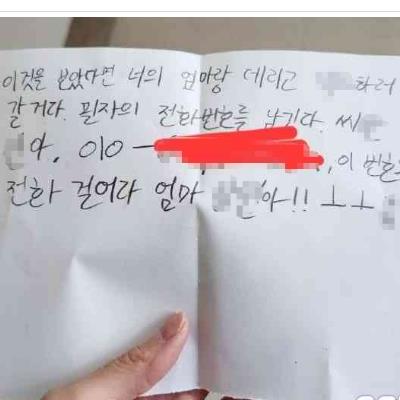 이것을 보았다면 너의 엄마랑 데리고 하러
갈거다. 필자의 전화번호를 남기다. 씨
아, 010- , 이 번호
전화 걸어라 엄마 아!! ㅗㅗ